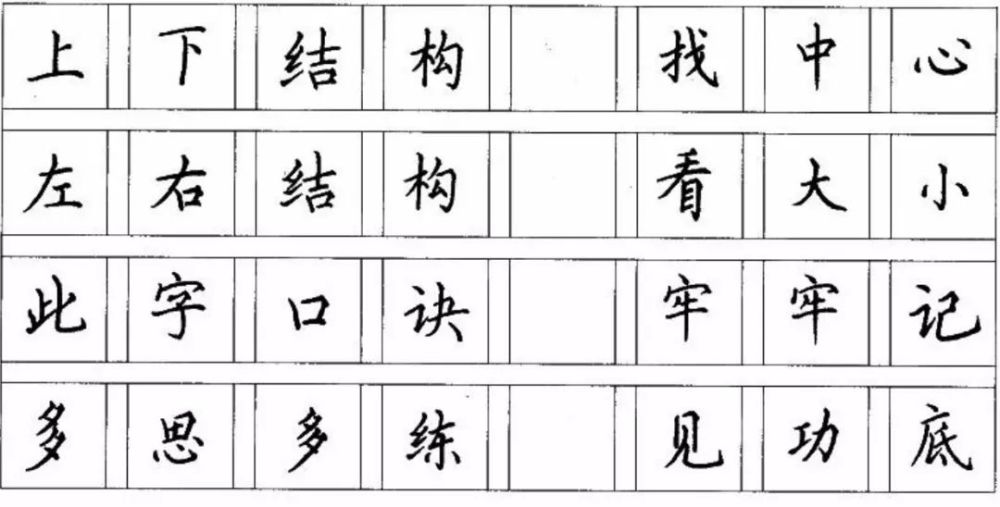 上下结构 找中心
左右结构 看大小
此字口诀 牢牢记
多思多练 见功底